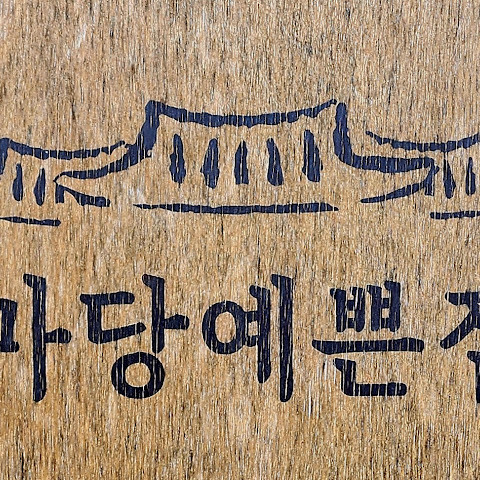 마당예쁜